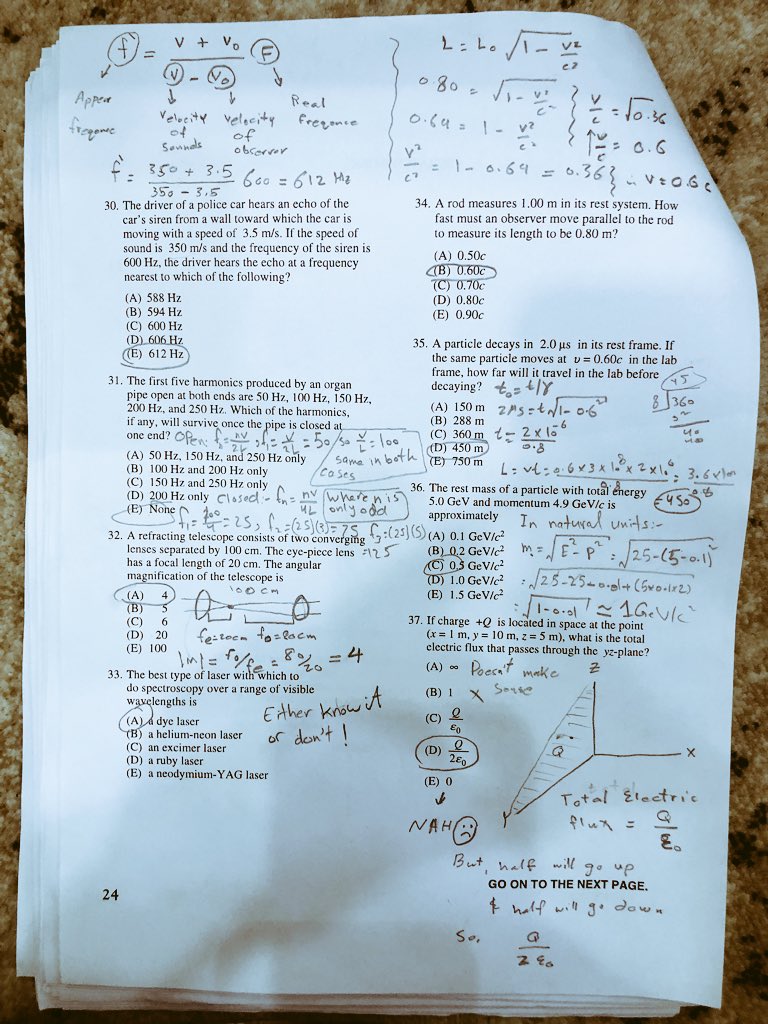 f' = V + Vo / V - Vo F
Appear
freqence
Velocity
of
Sounds
Velocity
of
observer
Real
Freqence
f' = 350 + 3.5 / 350 - 3.5 600 = 612 Hz
30. The driver of a police car hears an echo of the
car's siren from a wall toward which the car is
moving with a speed of 3.5 m/s. If the speed of
sound is 350 m/s and the frequency of the siren is
600 Hz, the driver hears the echo at a frequency
nearest to which of the following?
(A) 588 Hz
(B) 594 Hz
(C) 600 Hz
(D) 606 Hz
(E) 612 Hz
31. The first five harmonics produced by an organ
pipe open at both ends are 50 Hz, 100 Hz, 150 Hz,
200 Hz, and 250 Hz. Which of the harmonics,
if any, will survive once the pipe is closed at
one end?
Open: fn = nV/2L ; f1 = V/2L = 50 / so V/L = 100
same in both
cases
(A) 50 Hz, 150 Hz, and 250 Hz only
(B) 100 Hz and 200 Hz only
(C) 150 Hz and 250 Hz only
(D) 200 Hz only
(E) None
Closed:- fn = nV/4L
where n is
only odd
f1 = 100/4 = 25, f2 = (25)(3) = 75 f3 = (25)(5)
= 125
32. A refracting telescope consists of two converging
lenses separated by 100 cm. The eye-piece lens
has a focal length of 20 cm. The angular
magnification of the telescope is
(A) 4
(B) 5
(C) 6
(D) 20
(E) 100
100 cm
fe=20cm fo=80cm
|m| = fo/fe = 80/20 = 4
33. The best type of laser with which to
do spectroscopy over a range of visible
wavelengths is
(A) a dye laser
(B) a helium-neon laser
(C) an excimer laser
(D) a ruby laser
(E) a neodymium-YAG laser
Either know it
or don't!
24
L = Lo √1 - v²/c²
0.80 = √1 - v²/c²
0.64 = 1 - v²/c²
v²/c² = 1 - 0.64 = 0.36
v/c = √0.36
v/c = 0.6
∴ v = 0.6c
34. A rod measures 1.00 m in its rest system. How
fast must an observer move parallel to the rod
to measure its length to be 0.80 m?
(A) 0.50c
(B) 0.60c
(C) 0.70c
(D) 0.80c
(E) 0.90c
35. A particle decays in 2.0 μs in its rest frame. If
the same particle moves at υ = 0.60c in the lab
frame, how far will it travel in the lab before
decaying?
to = t/γ
(A) 150 m
(B) 288 m
(C) 360 m
(D) 450 m
(E) 750 m
2μs = t√1-0.6²
t = 2×10⁻⁶ / 0.8
45
8 360
L = vt = 0.6×3×10⁸×2×10⁻⁶ / 0.8
= 450
36. The rest mass of a particle with total energy
5.0 GeV and momentum 4.9 GeV/c is
approximately
(A) 0.1 GeV/c²
(B) 0.2 GeV/c²
(C) 0.5 GeV/c²
(D) 1.0 GeV/c²
(E) 1.5 GeV/c²
In natural units:-
m = √E² - P² = √25-(5-0.1)²
= √25-25-0.01+(5×0.1×2)
= √1-0.01 ≃ 1GeV/c²
37. If charge +Q is located in space at the point
(x = 1 m, y = 10 m, z = 5 m), what is the total
electric flux that passes through the yz-plane?
(A) ∞
(B) 1
(C) Q/ε0
(D) Q/2ε0
(E) 0
Doesn't make
Sense
X
NAH
Z
X
Y
Q
Total Electric
flux = Q/ε0
But, half will go up
GO ON TO THE NEXT PAGE.
& half will go down
So, Q / 2 ε0